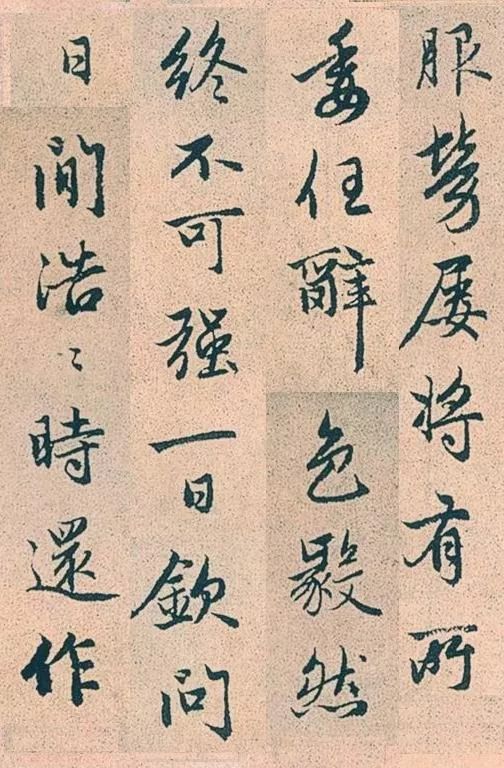 服勞屡将有所
委任辭色毅然
終不可强一日欽问
日间浩〻時還作